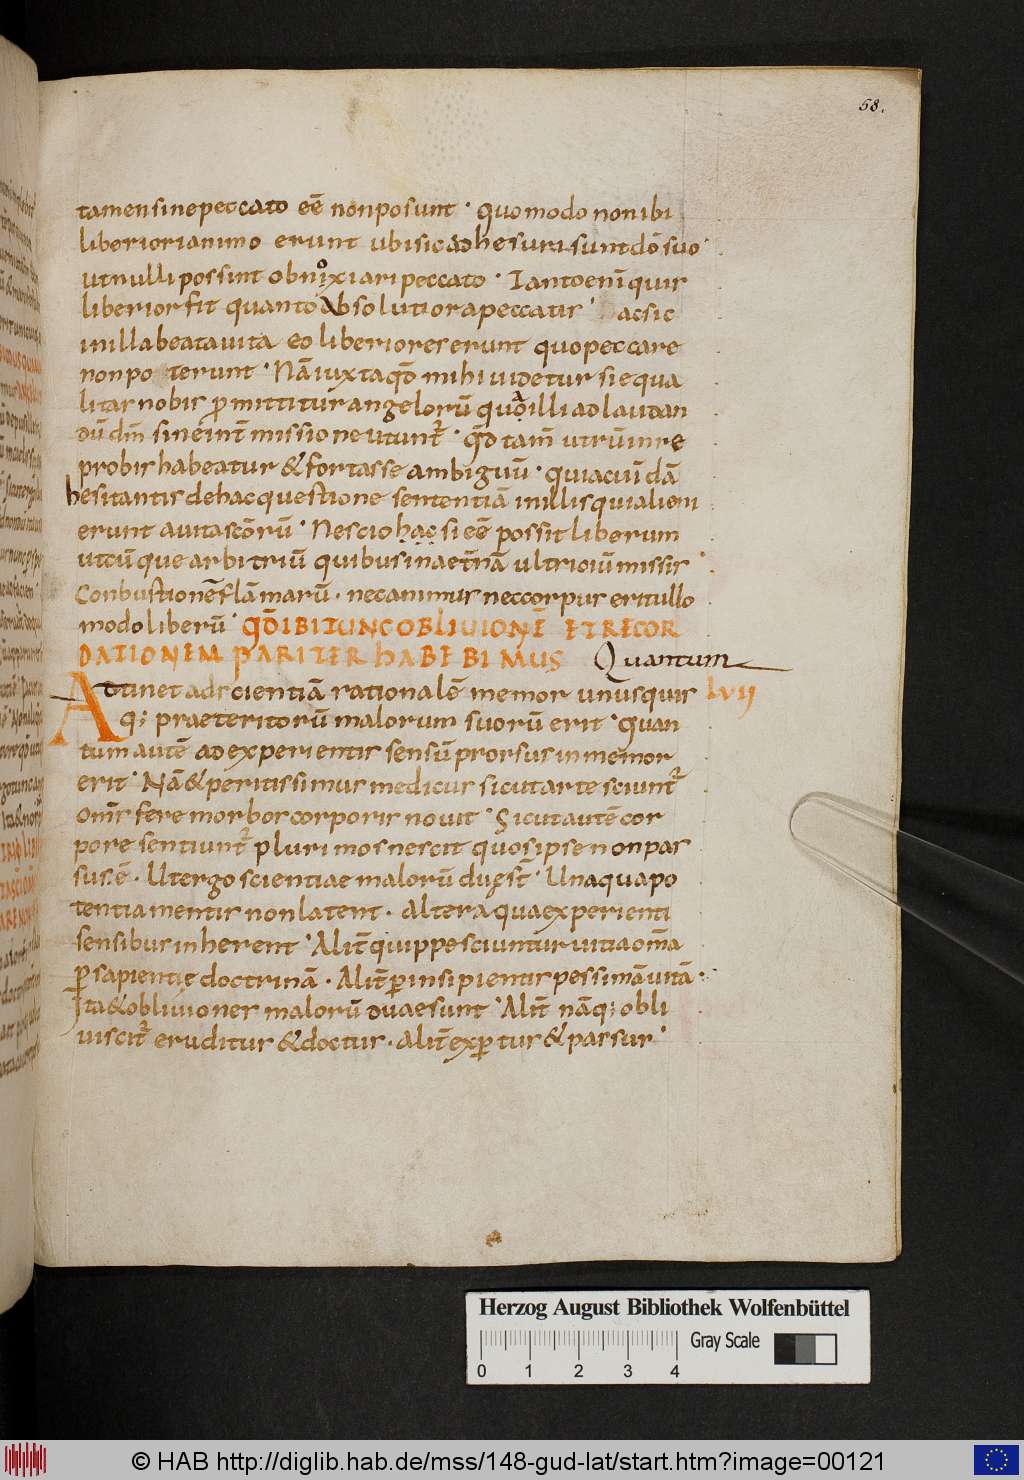 58.
tamen sine peccato eē non posunt · quomodo non ibi
liberiori animo erunt ubi sic adhesuri sunt dō suo
ut nulli possint obnoxiari peccato · Tanto eni᷎ quis
liberior fit quanto absolutior a peccatis · ac sic
in illa beata uita eo liberiores erunt quo peccare
non po terunt · Nā iuxta qd̄ mihi uidetur si equa
litas nobis ꝓmittitur angelorū quia illi ad laudan
dū dm̄ sine int̄missione utunt᷎ · qd̄ tam̄ utrū in re
probis habeatur & fortasse ambiguū · quia cui᷎dā
hesitantis de hac questione sententiā in illis qui alieni
erunt a uita scōrū · Nescio hac si eē possit liberum
utcūque arbitriū quibus in aet̄nā ultriciū missis
conbustionē flāmarū · nec animus nec corpus erit ullo
modo liberū · QD̄ IBI TUNC OBLIUIONĒ ET RECOR
DATIONEM PARITER HABEBIMUS Quantum
Attinet ad scientiā rationalē memor unusquis LVII
q; praeteritorū malorum suorū erit · Quan
tum autē ad experientis sensū prorsus inmemor
erit · Nā & peritissimus medicus sicut arte sciunt᷎
om̄s fere morbos corporis nouit · Sicut autē cor
pore sentiunt᷎ plurimos nescit quos ipse non pas
sus ē · Ut ergo scientiae malorū duę st̄ · Una qua po
tentia mentis non latent · altera qua experienti
sensibus inherent · Alit̄ quippe sciuntur uitia om̄a
ꝑ sapientię doctrinā · Alit̄ ꝑ insipientis pessimā uitā ·
Ita & obliuiones malorū duae sunt · Alit̄ nāq; obli
uiscit᷎ eruditus & doctus · alit̄ exꝑtus & passus ·
Herzog August Bibliothek Wolfenbüttel
Gray Scale
0 1 2 3 4
© HAB http://diglib.hab.de/mss/148-gud-lat/start.htm?image=00121